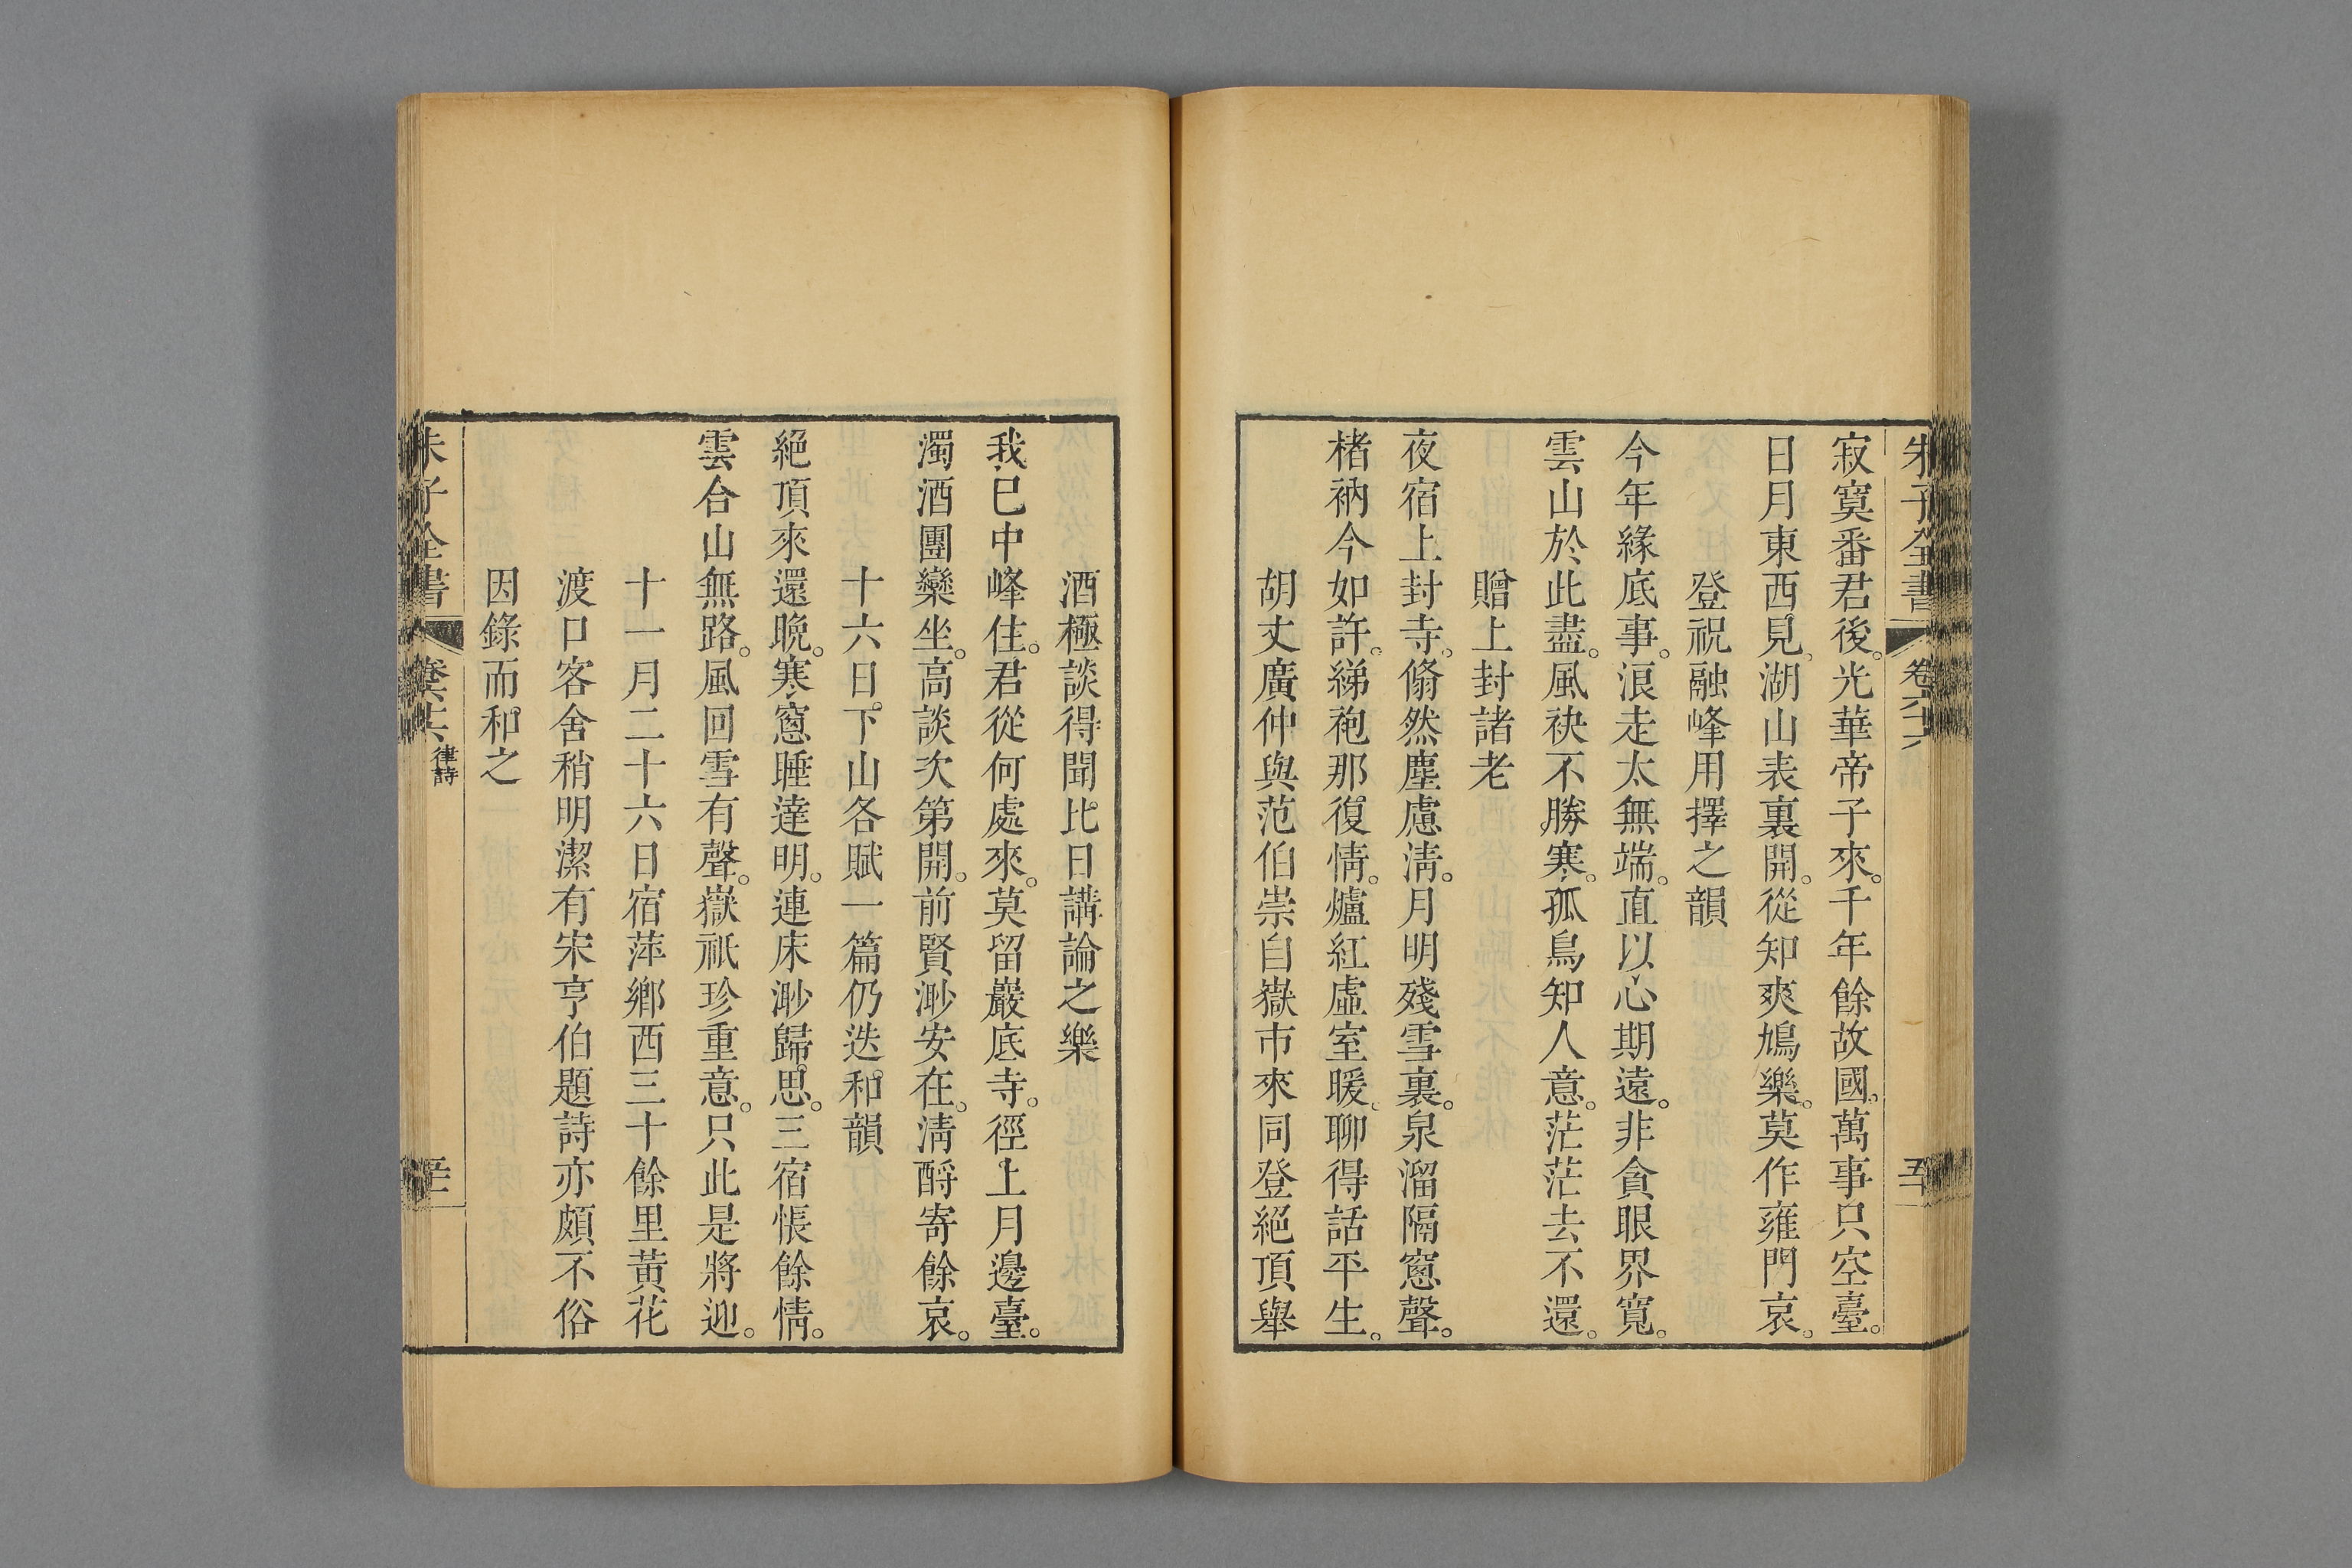 朱子全書 卷六十六 五十
寂寞番君後。光華帝子來。千年餘故國。萬事只空臺。
日月東西見。湖山表裏開。從知爽鳩樂。莫作雍門哀。
登祝融峰用擇之韻
今年緣底事。浪走太無端。直以心期遠。非貪眼界寬。
雲山於此盡。風袂不勝寒。孤鳥知人意。茫茫去不還。
贈上封諸老
夜宿上封寺。翛然塵慮淸。月明殘雪裏。泉溜隔窻聲。
楮衲今如許。綈袍那復情。爐紅虛室暖。聊得話平生。
胡丈廣仲與范伯崇自嶽市來同登絕頂舉
酒極談得聞比日講論之樂
我已中峰住。君從何處來。莫留巖底寺。徑上月邊臺。
濁酒團欒坐。高談次第開。前賢渺安在。淸酹寄餘哀。
十六日下山各賦一篇仍迭和韻
絕頂來還晚。寒窻睡達明。連床渺歸思。三宿悵餘情。
雲合山無路。風回雪有聲。嶽祇珍重意。只此是將迎。
十一月二十六日宿萍鄉西三十餘里黃花
渡口客舍稍明潔有宋亨伯題詩亦頗不俗
因錄而和之
朱子全書 卷六十六 律詩